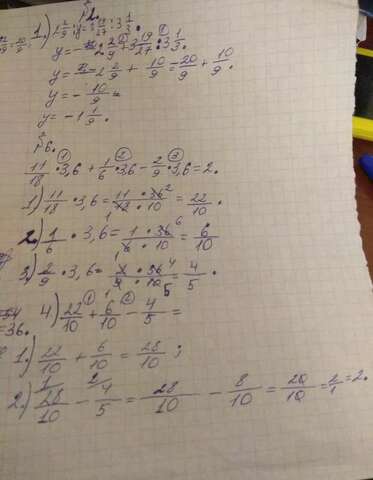 y = - 2 2/9 + 3 19/27 : 3 1/3.
y = - 2 2/9 + 10/9 = - 20/9 + 10/9.
y = - 10/9 =
y = - 1 1/9.
№6.
11/18 · 3,6 + 1/6 · 3,6 - 2/9 · 3,6 = 2.
1) 11/18 · 3,6 = 11 · 36 2/18 · 10 = 22/10.
2.) 1/6 · 3,6 = 1 · 36 6/6 · 10 = 6/10
3) 2/9 · 3,6 = 36 4/10 5 = 4/5.
=36. 4) 22/10 + 6/10 - 4/5 =
1.) 22/10 + 6/10 = 28/10 ;
2.) 28/10 - 4/5 = 28/10 - 8/10 = 20/10 = 2/1 = 2.